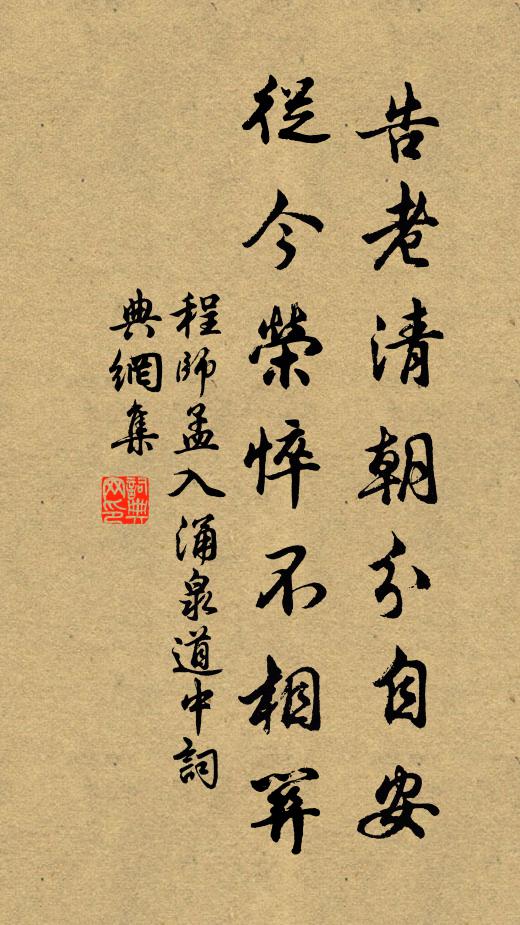 告老清朝分自安
從今榮悴不相關
程師孟入涌泉道中詞
典網集
詞典網印